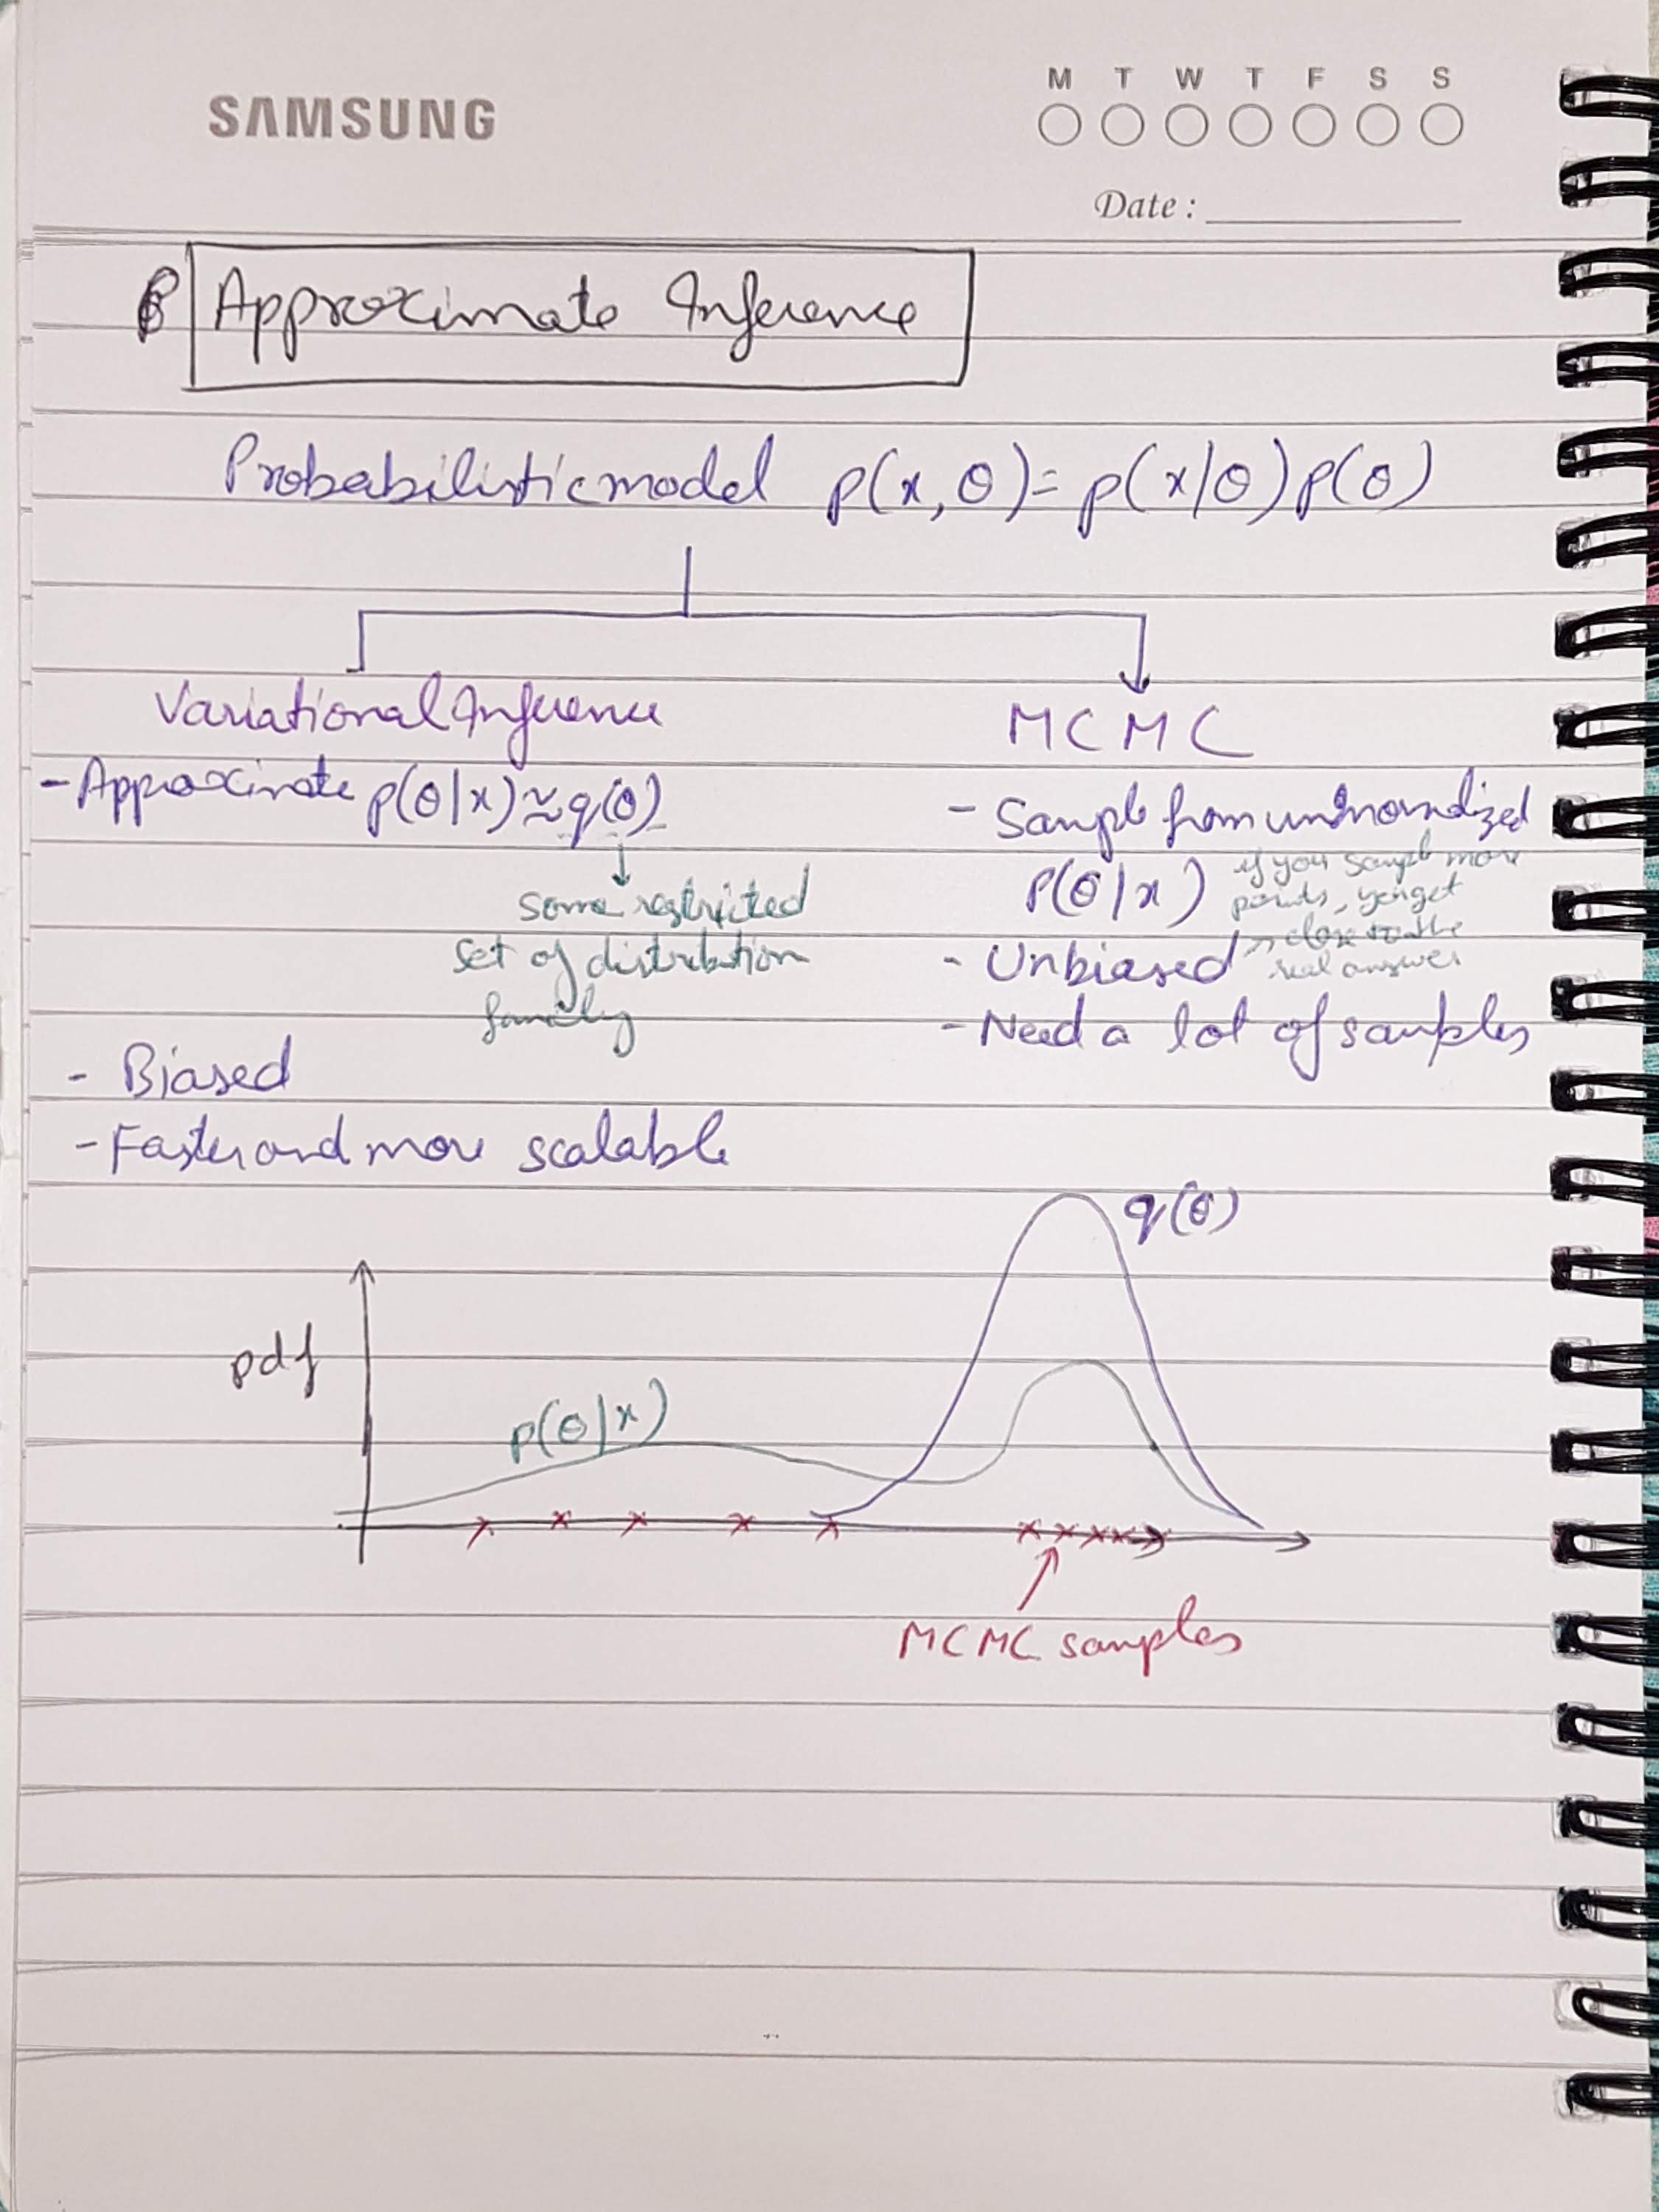 SAMSUNG
M T W T F S S
Date :
Approximate Inference
Probabilistic model p(x, θ) = p(x/θ) p(θ)
Variational Inference
- Approximate p(θ|x) ≈ q(θ)
some restricted
set of distribution
family
- Biased
- Faster and more scalable
MCMC
- Sample from unnormalized
P(θ/x)
if you sample more
points, you get
close to the
real answer
- Unbiased
- Need a lot of samples
q(θ)
pdf
p(θ/x)
MCMC samples